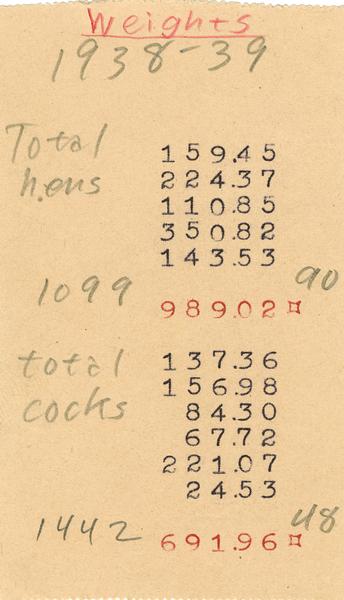 Weights
1938-39
Total
hens
159.45
224.37
110.85
350.82
143.53
1099
989.02¤
90
total
cocks
137.36
156.98
84.30
67.72
221.07
24.53
1442
691.96¤
48